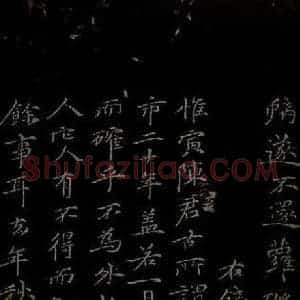 遂不還
右
惟寅陳君古所謂
市二十年蓋若一日
而確乎不為外
人它人有不得而
餘事耳亥年秒
Shufaziliao.com